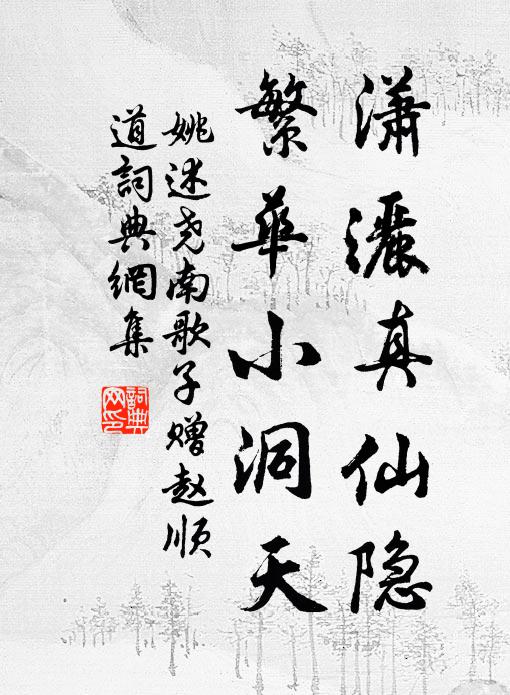 潇灑真仙隐
繁华小洞天
姚述尧南歌子赠赵顺
道詞典網集
詞典网印